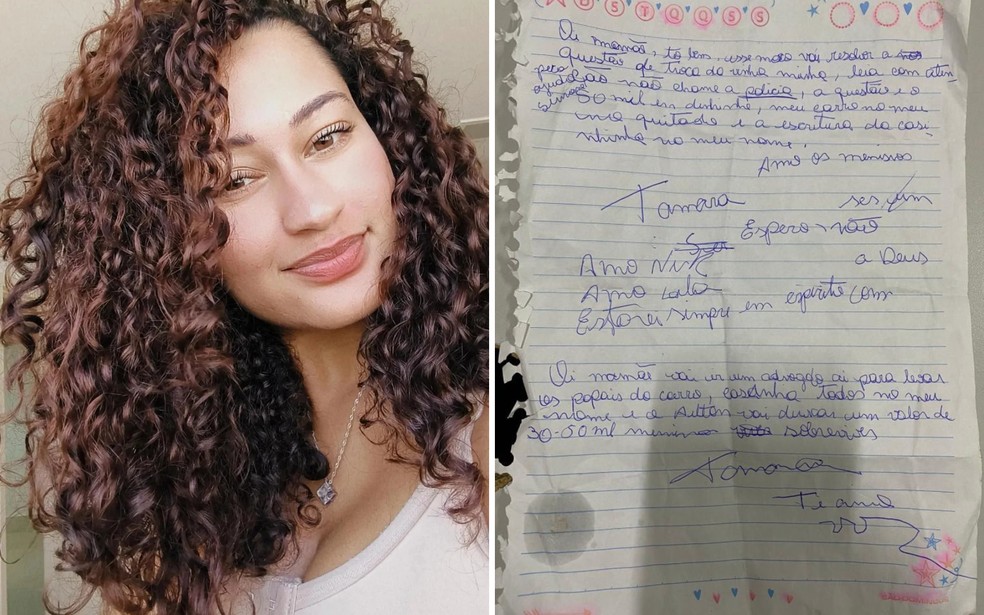 D S T Q Q S S
Oi mamãe, tô bem, esse moço vai resolver a
questão de troca da minha, leia com aten
peço ção não chame a policia, a questão é o
ajuda 50 mil em dinheiro, meu carro no meu
quitado e a escritura da casi-
nha no meu nome.
Amo os meninos
Tamara
Espero não
Amo a Deus
Amo
Estarei sempre em espirito com
Oi mamãe vai ir um advogdo ai para levar
os papais do carro, casinha todos no meu
nome e o vai deixar um valor de
30-50 mil
Te amo